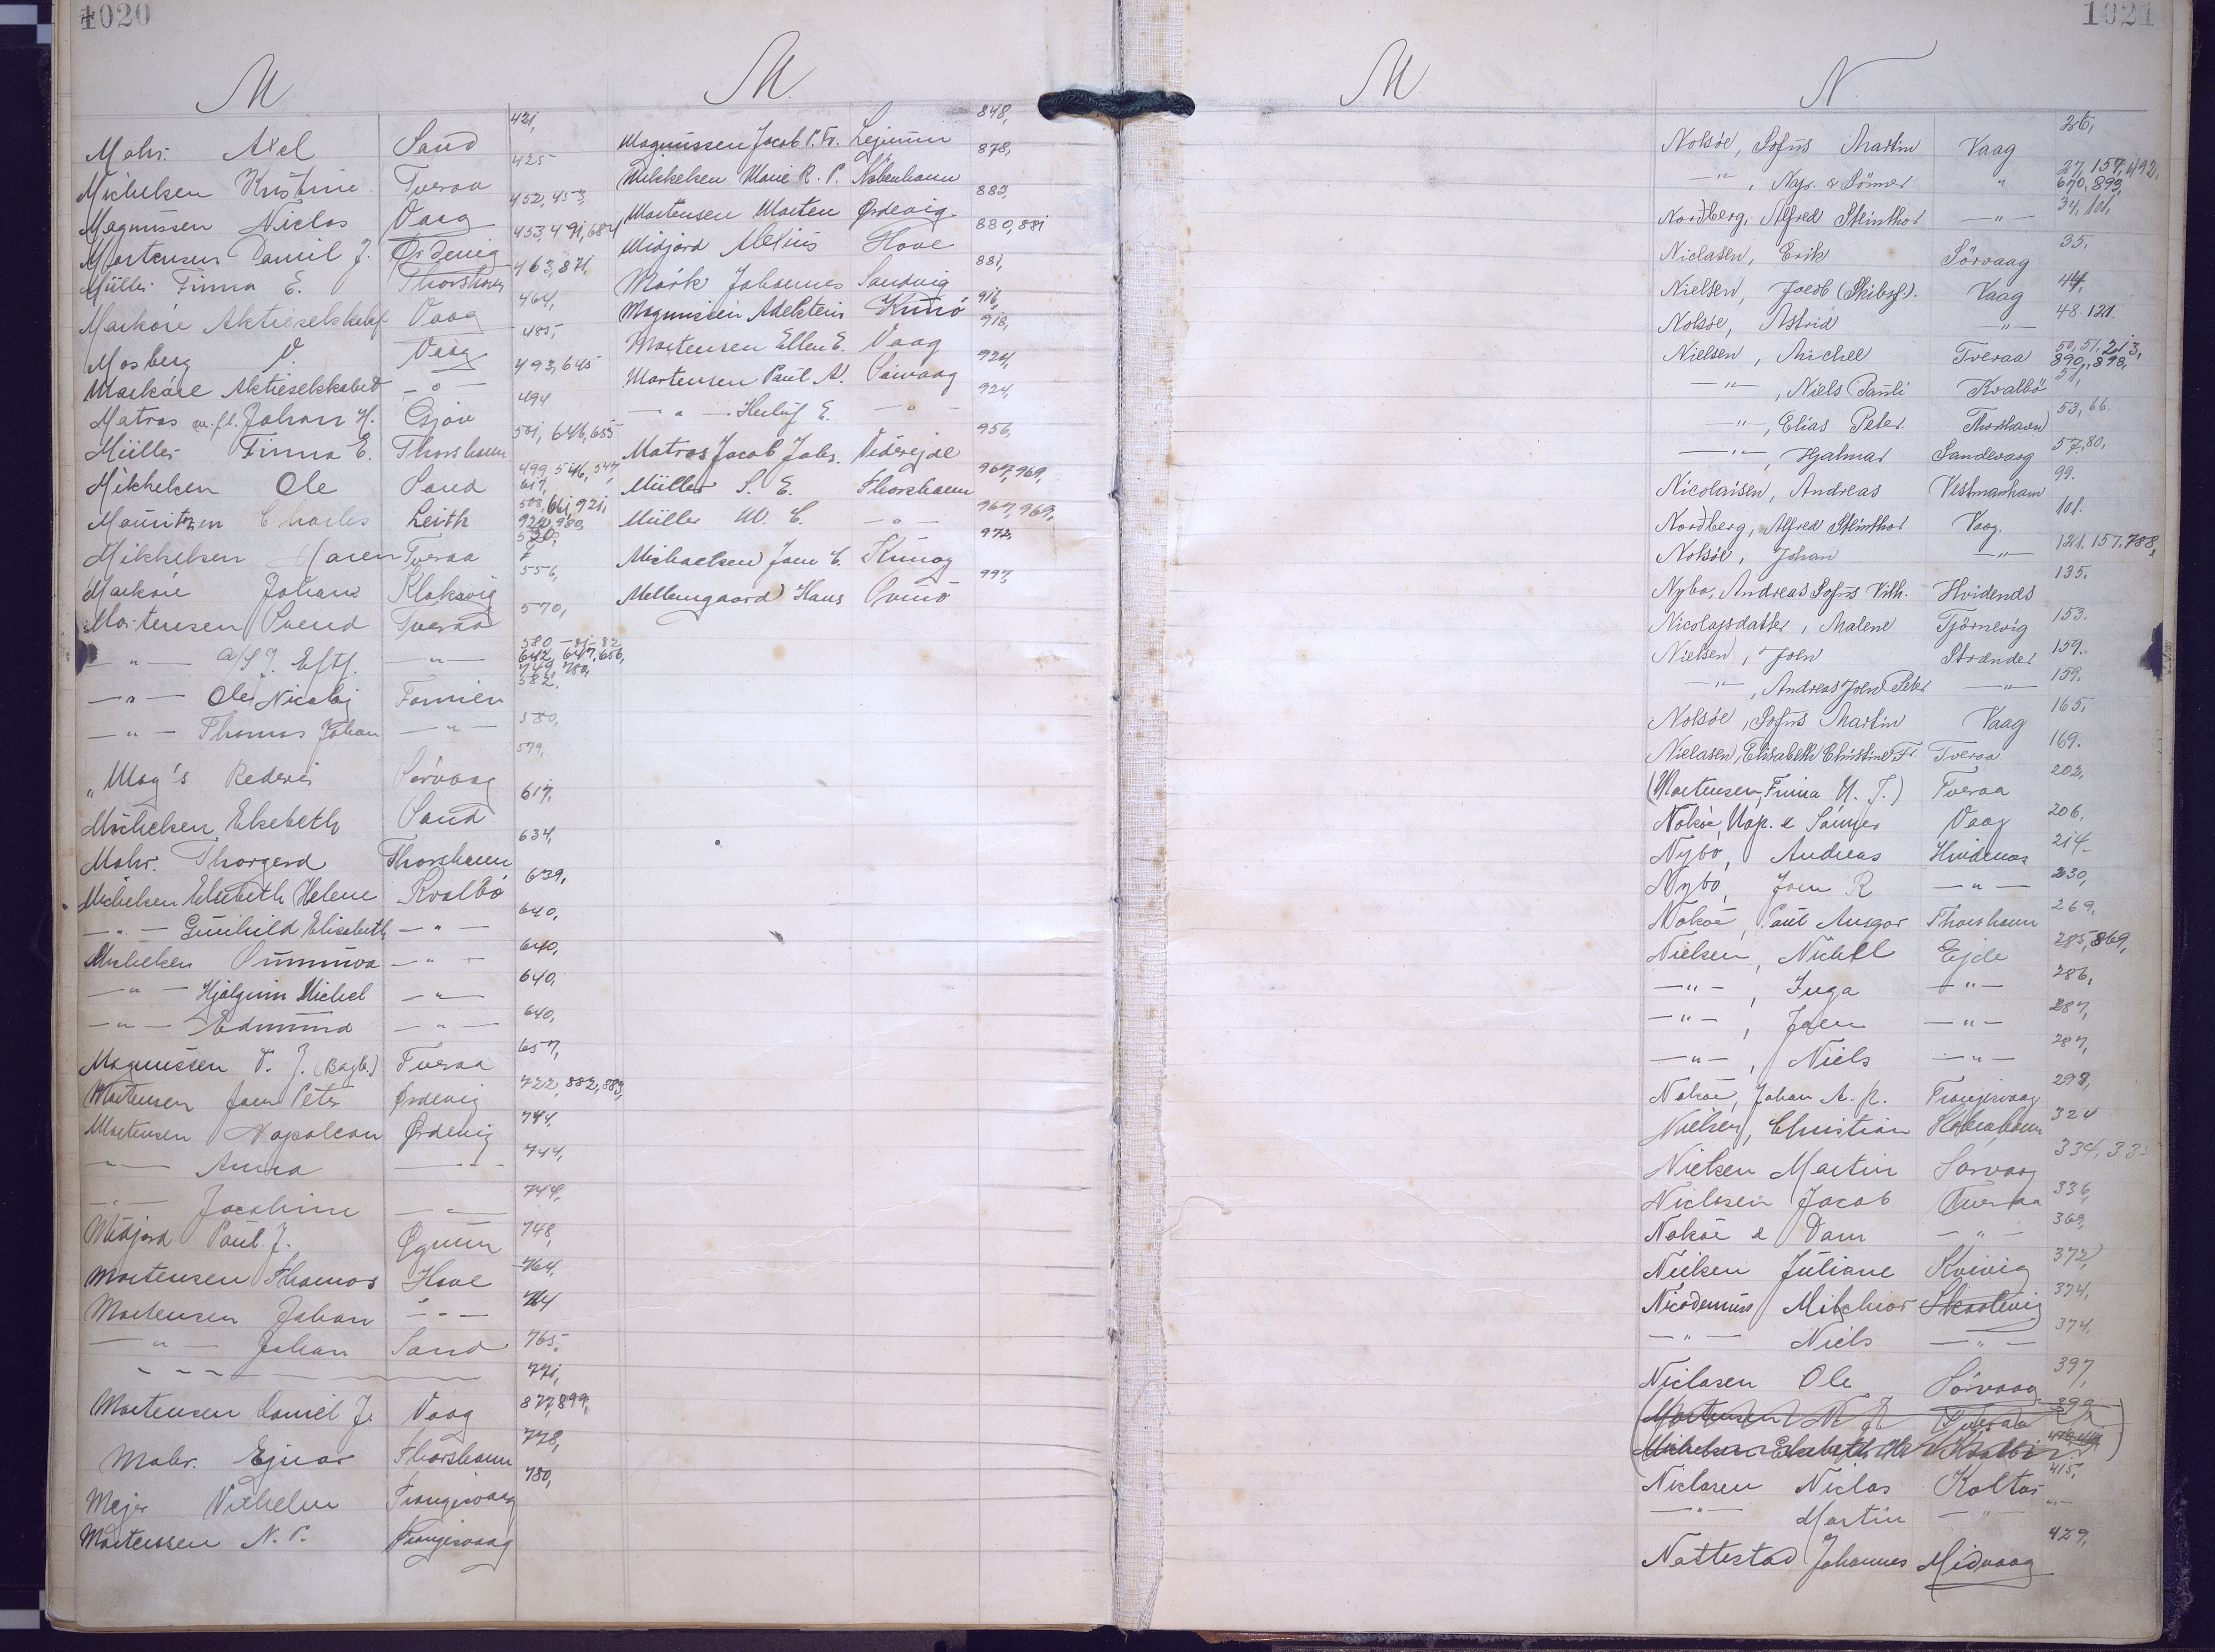 1020
M
Mohr. Axel Sand 421,
Michelsen Kristine Tveraa 425
Magnussen Niclas Vaag 452, 453,
Mortensen Daniel J. Ørdevig 453, 491, 684
Müller Finna E. Thorshavn 463, 871,
Markøre Aktieselskabet Vaag 464,
Mosberg V. Vaag 485,
Markøre Aktieselskabet —"— 493, 645
Matras m.fl. Johan H. Gjov 494
Müller Finna E. Thorshavn 501, 646, 655
Mikkelsen Ole Sand 499, 546, 547, 617,
Mauritzen Charles Leith
Mikkelsen Maren Tveraa
Markøre Johan Klaksvig 556,
Mortensen Svend Tveraa 570,
—"— A/S J. Eftf. —"— 580-81-82 642, 647, 656, 749, 780,
—"— Ole Nicolaj Famien 582.
—"— Thomas Johan —"— 580,
"Mog's Rederi Sørvaag 579,
Michelsen Elsebeth Sand 617,
Mohr. Thorgerd Thorshavn 634,
Michelsen Elsebeth Helene Kvalbø 639,
—"— Gunhild Elisabeth —"— 640,
Michelsen Sunnuva —"— 640,
—"— Hjalgrim Michel —"— 640,
—"— Edmund —"— 640,
Magnussen V. J. (Bagb.) Tveraa 657,
Mortensen Joen Peter Ørdevig 722, 882, 883,
Mortensen Napoleon Ørdevig 744,
—"— Anna —"— 744,
—"— Jacobine —"— 744,
Midjord Poul J. Øgnun 748,
Mortensen Thomas Hove 764,
Mortensen Johan —"— 764
—"— Johan Sand 765,
— — — 771,
Mortensen Daniel J. Vaag 877, 899,
Mohr. Ejnar Thorshavn 778,
Mejer Vilhelm Trangisvaag 780,
Mortensen N. P. Trangisvaag
M.
Magnussen Jacob P. Fr. Lejnum 848,
Mikkelsen Marie R. P. København 878,
Mortensen Morten Ørdevig 883,
Midjord Alexius Hove 880, 881
Mörk Johannes Sandvig 881,
Magnussen Adelstein Kunö 916,
Mortensen Ellen E. Vaag 918,
Mortensen Poul A. Sørvaag 924,
—"— Herluf E. —"— 924,
Matras Jacob Johs. Viderejde 956,
Müller S. E. Thorshavn 967, 969,
Müller W. C. —"— 967, 969,
Michaelsen Joen C. Kunoy 972,
Mellemgaard Hans Svinö 997,
M.
1021
N
Nolsøe, Sofus Martin Vaag 26,
—"—, Nap. & Sönner " 27, 157, 492, 670, 893,
Nordberg, Alfred Steinthor —"— 34, 101,
Niclasen, Erik Sörvaag 35.
Nielsen, Jacob (Skibsf). Vaag 44,
Nolsöe, Astrid —"— 48. 121.
Nielsen, Michel Tveraa 50, 51, 213, 890, 898,
—"—, Niels Pauli Kvalbö 51,
—"—, Elias Peter. Thorshavn 53, 66.
—"—, Hjalmar Sandevaag 57, 80,
Nicolaisen, Andreas Vestmanhavn 99.
Nordberg, Alfred Steinthor Vaag. 101.
Nolsöe, Johan —"— 121. 157. 788,
Nybo, Andreas Sofus Vilh. Hvidenæs 135.
Nicolajsdatter, Malene Tjörnevig 153.
Nielsen, John Strænder 159.
—"—, Andreas John Peter —"— 159.
Nolsöe, Sofus Martin Vaag 165,
Nielasen, Elisabeth Christine Fr. Tveraa 169.
(Mortensen, Finna N. J.) Tveraa 202,
Nolsøe, Nap. & Sönner Vaag 206.
Nybo, Andreas Hvidenæs 214-
Nybo, Joen R —"— 230,
Nolsøe, Poul Ansgar Thorshavn 269,
Nielsen, Nichel Ejde 285, 869,
—"—, Inga —"— 286,
—"—, Joen —"— 287,
—"—, Niels —"— 287,
Nolsøe, Johan A. R. Trangisvaag 298,
Nielsen, Christian København 324
Nielsen Martin Sørvaag 334, 335
Niclasen Jacob Tveraa 336,
Nolsøe & Dam —"— 369,
Nielsen Juliane Kvivig 372,
Nicodemus Milchior Skaalevig 374,
—"— Niels —"— 374.
Niclasen Ole Sørvaag 397,
(Mortensen N J Tveraa 399
Michelsen Elsebeth He Kvalbö)
Niclasen Niclas Koltur 415,
—"— Martin —"— "
Nattestad Johannes Midvaag 429,